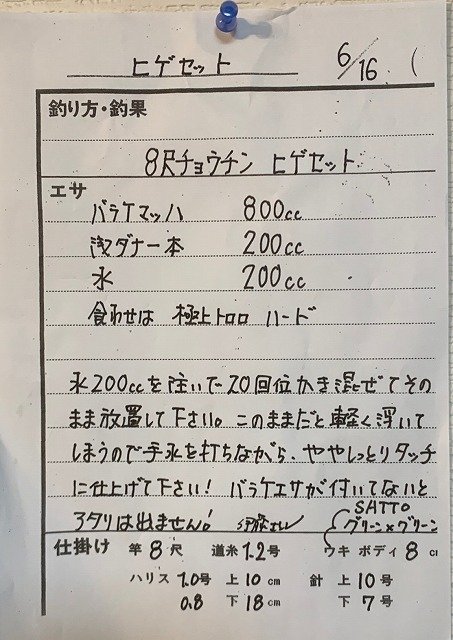 ヒゲセット 6/16 (
釣り方・釣果
8尺チョウチン ヒゲセット
エサ
バラケマッハ 800cc
浅ダナ一本 200cc
水 200cc
食わせは 極上トロロ ハード
水200ccを注いで20回位かき混ぜてその
まま放置して下さい。このままだと軽く浮いて
しまうので手水を打ちながら、ややしっとりタッチ
に仕上げて下さい! バラケエサが付いてないと
アタリは出ません!
SATTO
グリーン×グリーン
仕掛け 竿 8 尺 道糸 1.2号 ウキ ボディ 8 c
ハリス 1.0号 上 10 cm 針 上 10 号
0.8 下 18 cm 下 7 号